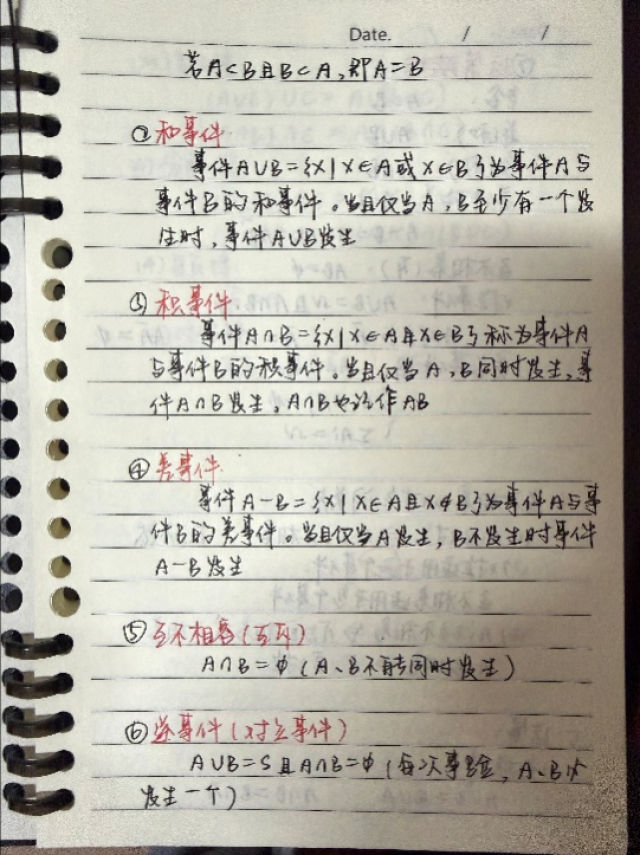 Date. / /
若A⊂B且B⊂A,即A=B
②和事件
事件A∪B={x|x∈A或x∈B}为事件A与
事件B的和事件。当且仅当A,B至少有一个发
生时,事件A∪B发生
③积事件
事件A∩B={x|x∈A且x∈B}称为事件A
与事件B的积事件。当且仅当A,B同时发生,事
件A∩B发生,A∩B也记作AB
④差事件
事件A-B={x|x∈A且x∉B}为事件A与事
件B的差事件。当且仅当A发生,B不发生时事件
A-B发生
⑤互不相容(互斥)
A∩B=∅(A、B不能同时发生)
⑥逆事件(对立事件)
A∪B=S且A∩B=∅(每次事验,A、B必
发生一个)